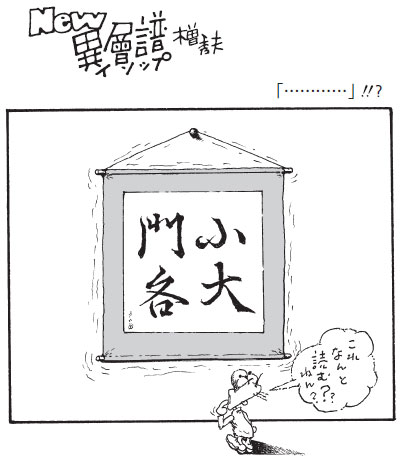 New
異層譜
イソップ
「…………」!!?
小大
門各
これ
なんと
読む?
ねん?